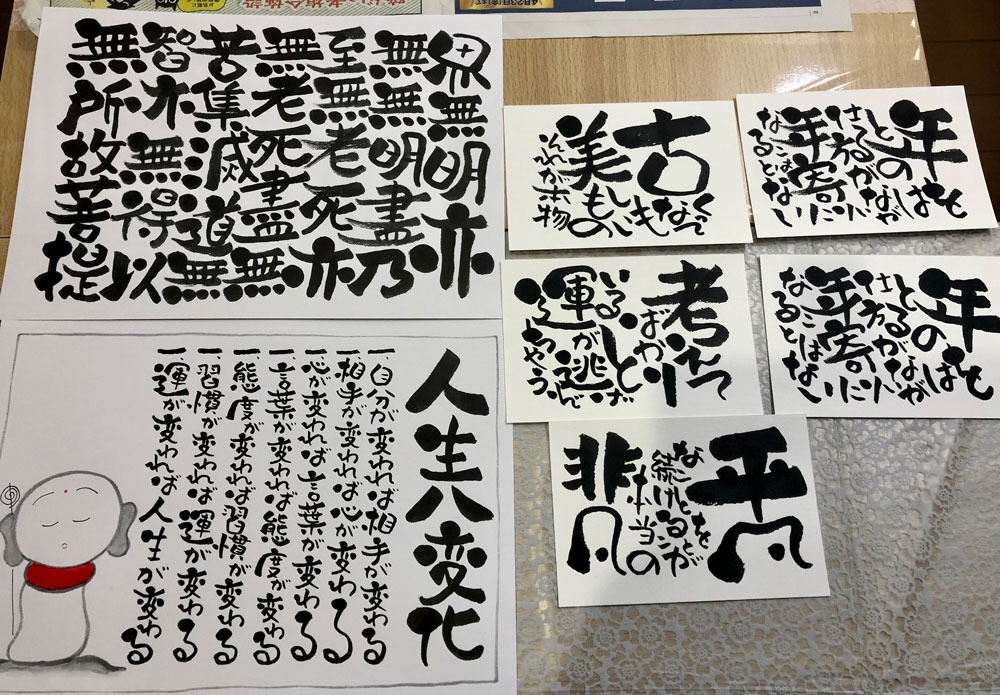 界無明亦
無無明盡乃
至無老死亦
無老死盡無
苦集滅道無
智亦無得以
無所故菩提
人生八変化
一、自分が変われば相手が変わる
一、相手が変われば心が変わる
一、心が変われば言葉が変わる
一、言葉が変われば態度が変わる
一、態度が変われば習慣が変わる
一、習慣が変われば運が変わる
一、運が変われば人生が変わる
古
くなって
も
美しい
もの
それが本物
年
とるのは
仕方がないが
年寄に
なることはない
考えて
ばかり
いると
運が逃げ
年
とるのは
仕方がないが
年寄に
なることはない
平凡
なことを
続けることが
本当の
非凡